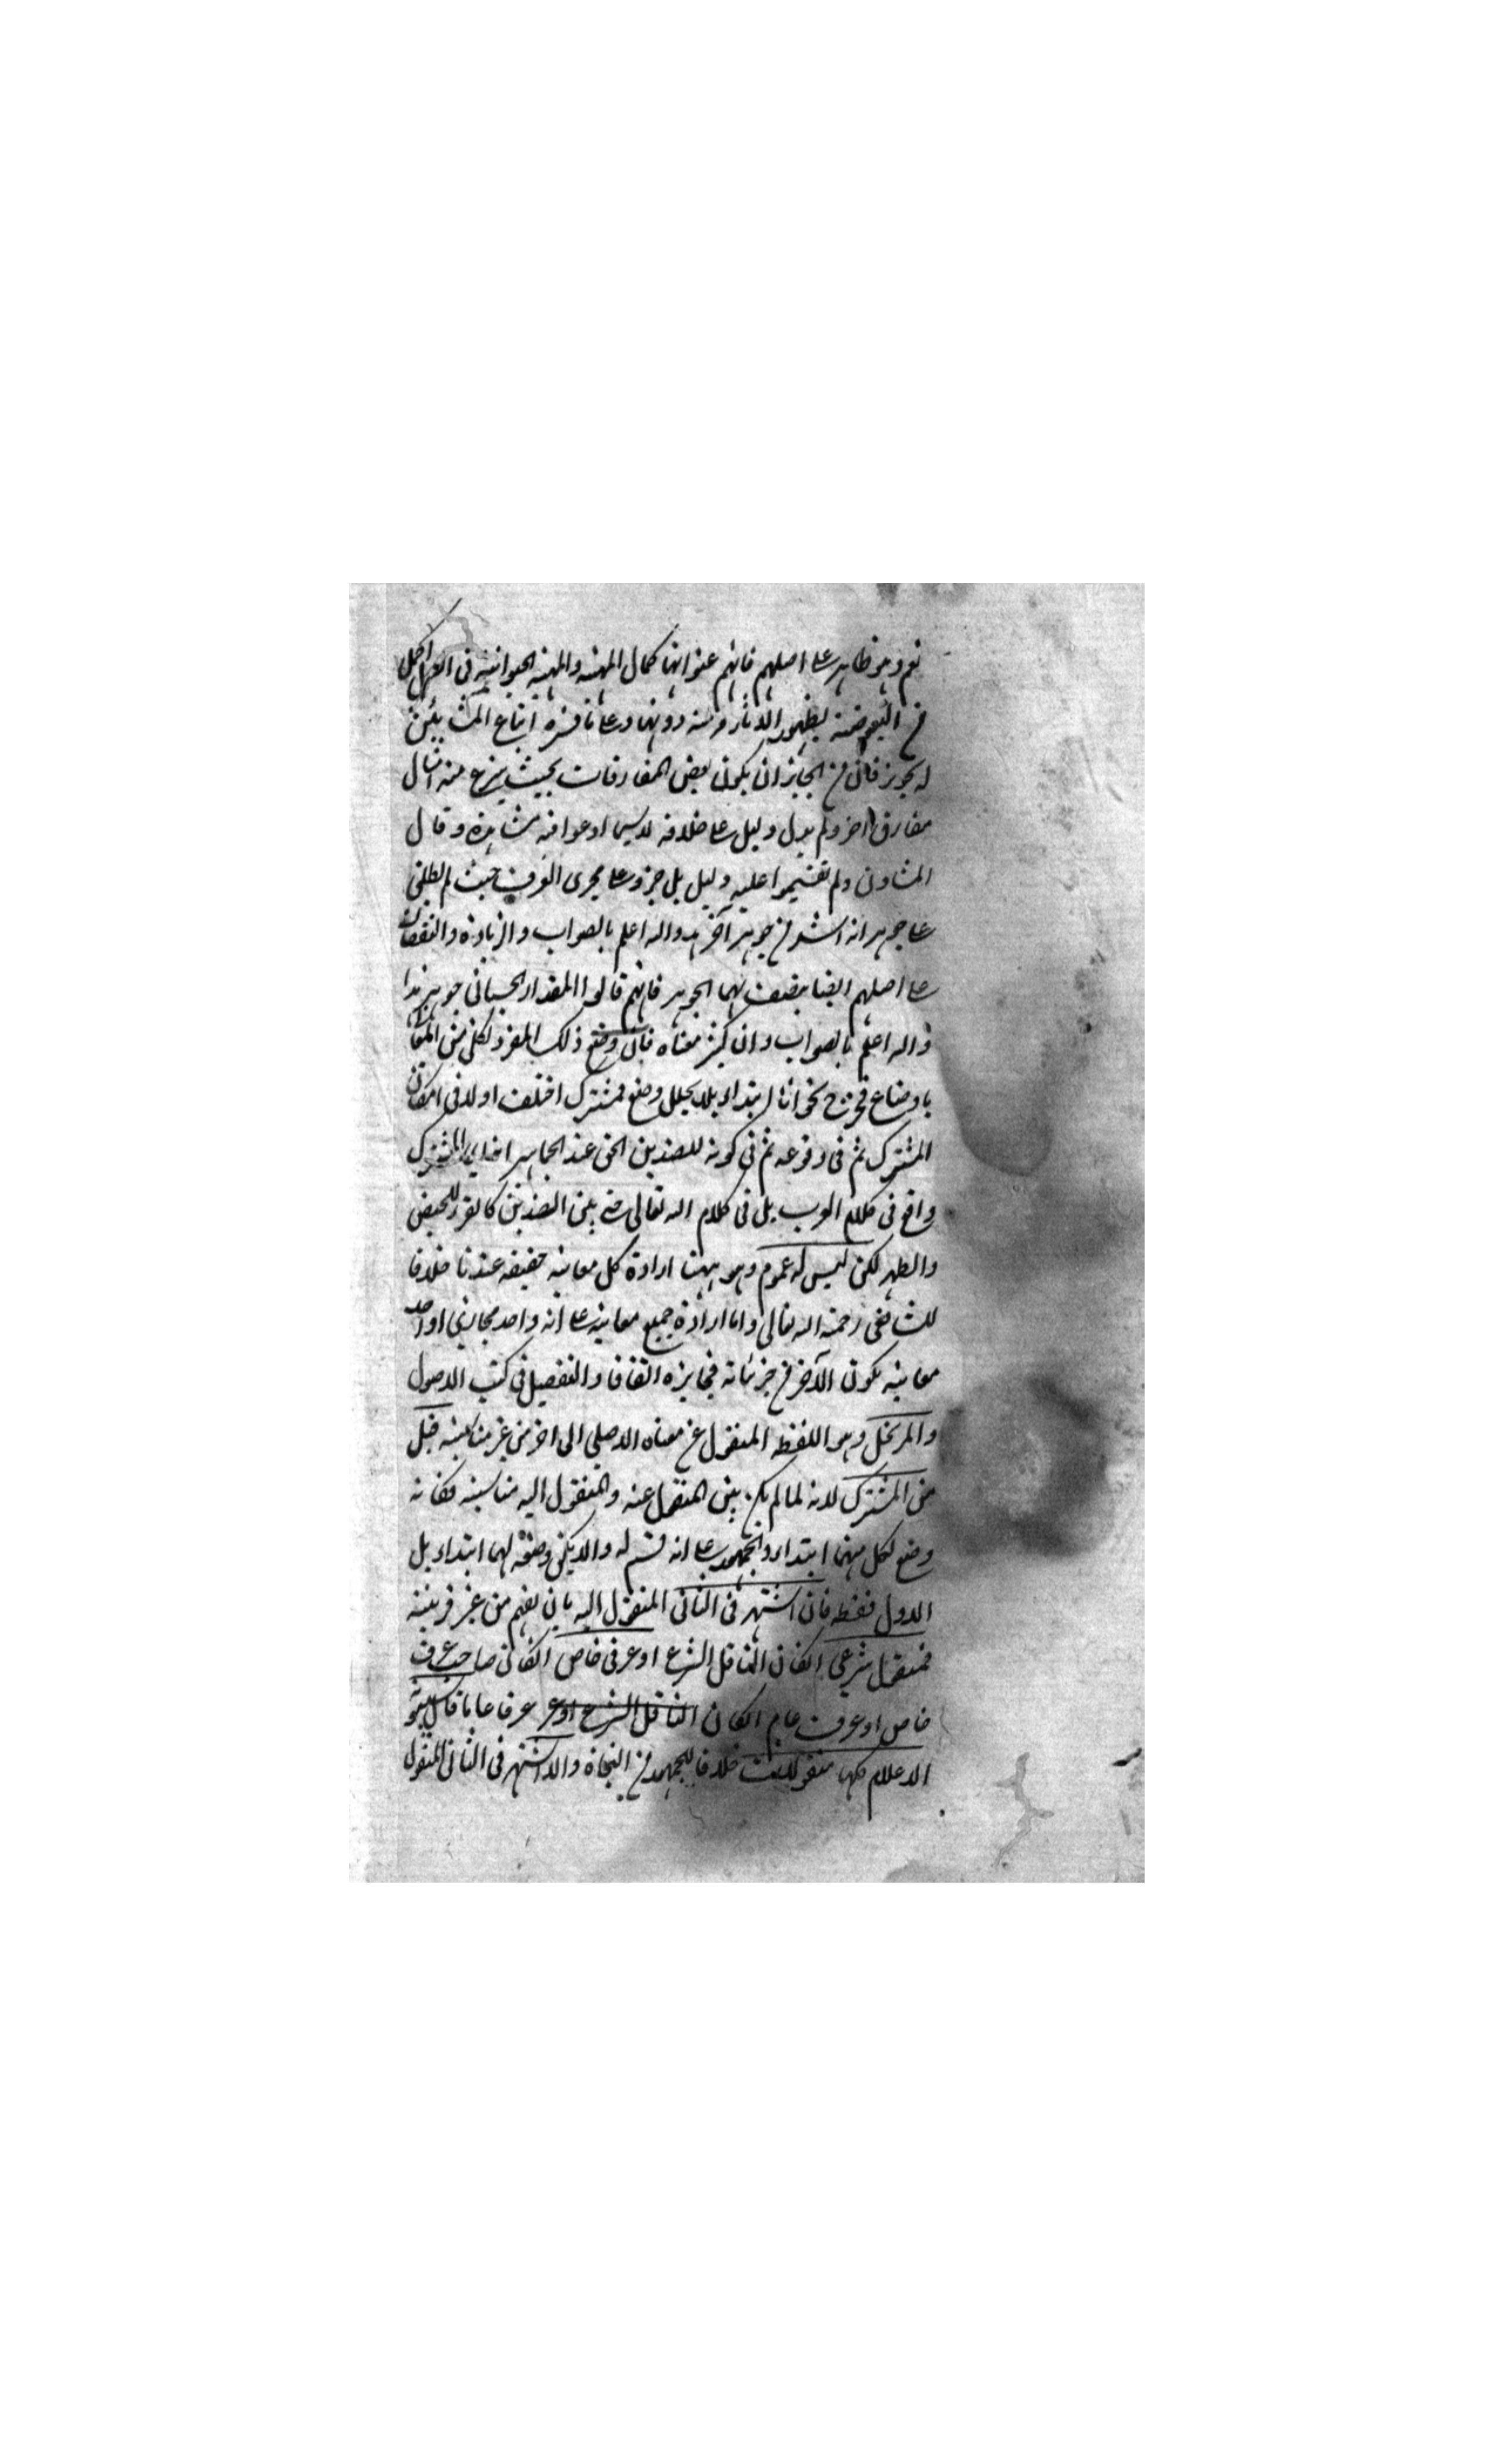 نعم وهو ظاهر على اصلهم فانهم عنوا بها كمال المهية والمهية الحيوانية في الفرس اكمل
من البعوضة لظهور الاثار منه دونها وعلى ما قرره اتباع المشائين
له يجوز فان من الجائز ان يكون بعض المفارقات بحيث ينتزع منه امثال
مفارق اخر ولم يدل دليل على خلافه لاسيما ادعوا فيه مشاهدة وقال
المشاؤن ولم يقيموا عليه دليل بل جروا على مجرى العرف حيث لم يطلق
على جوهر انه اشد من جوهر آخر والله اعلم بالصواب والزيادة والنقصان
على اصلهم ايضا يضيف لهما الجوهر فانهم قالوا المقدار الجسماني جوهر هذا
والله اعلم بالصواب وان كثر معناه فان وضع ذلك المفرد لكل من المعاني
باوضاع ابتداء بلا تخلل وضع فمشترك اختلف اولا في امكان
المشترك ثم في وقوعه ثم في كونه للضدين الحق عند الجماهير المشترك
واقع في كلام العرب بل في كلام الله تعالى حتى بين الضدين كالقرء للحيض
والطهر لكن ليس له عموم وهو ههنا ارادة كل معانيه حقيقة عندنا خلافا
للشافعي رحمة الله تعالى واما ارادة جميع معانيه على انه واحد مجازي او احد
معانيه يكون الآخر من جزئياته فجايزة اتفاقا والتفصيل في كتب الاصول
والمرتجل وهو اللفظ المنقول عن معناه الاصلي الى اخر من غير مناسبة قيل
من المشترك لانه لما لم يكن بين المنقول عنه والمنقول اليه مناسبة فكانه
وضع لكل منهما ابتداء والجمهور على انه قسم له والا يكن وضعه لهما ابتداء بل
الاول فقط فان اشتهر في الثاني المنقول اليه بان يفهم من غير قرينة
فمنقول شرعي انكان الناقل الشرع او عرفي خاص انكان صاحب عرف
خاص او عرف عام انكان الناقل الشرع او عر عرفا عاما قال سيبويه
الاعلام كلها منقولات خلافا للجمهور من النحاة والا اشتهر في الثاني المنقول